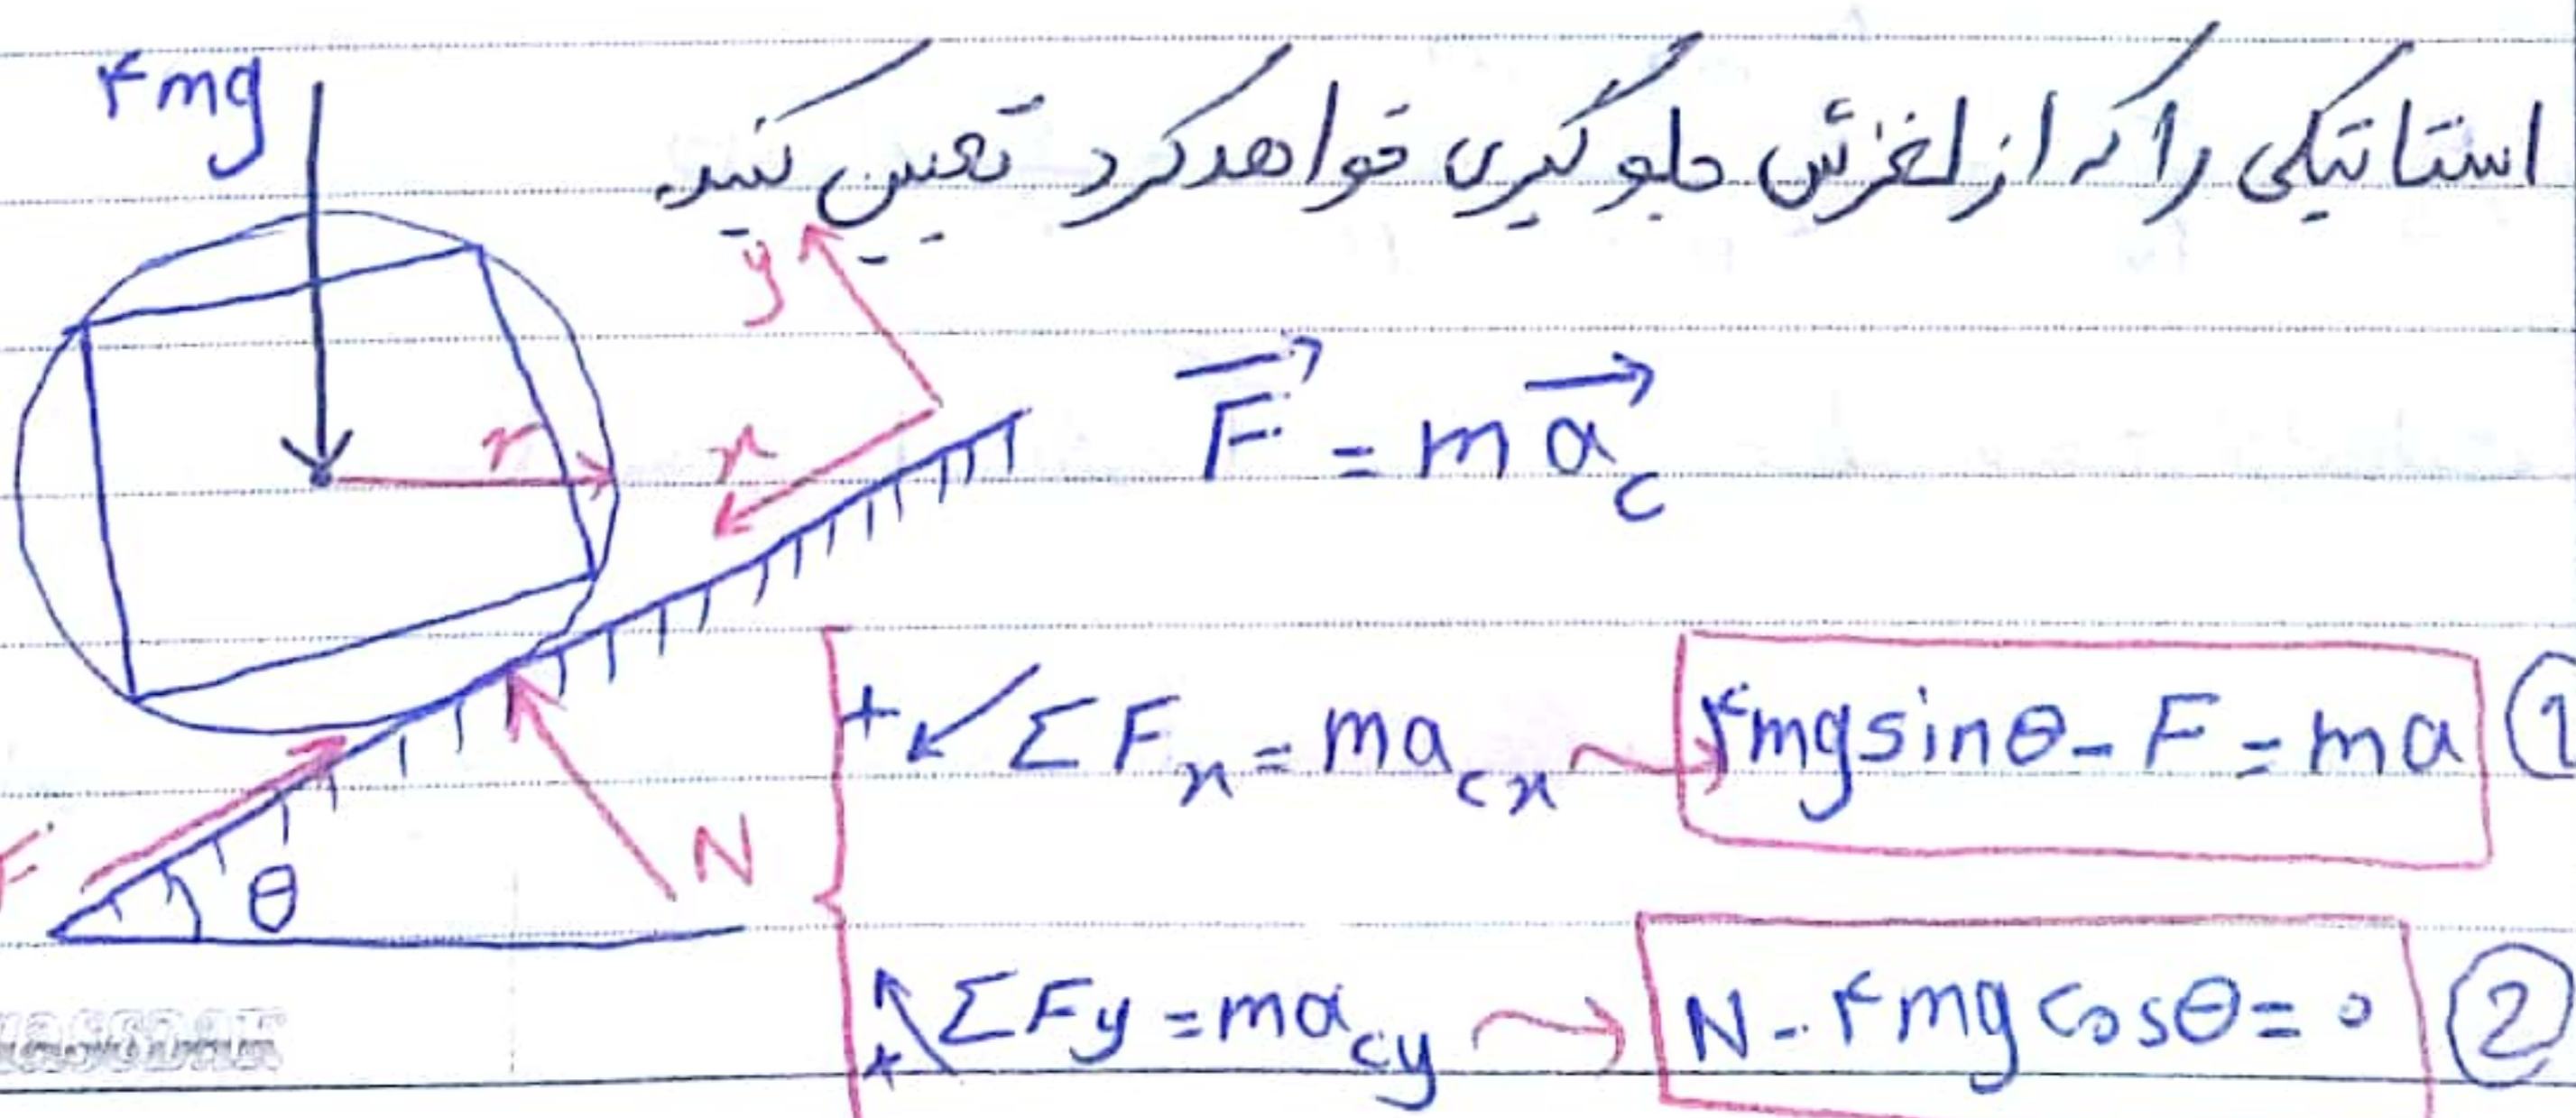 استاتیکی را که از لغزش جلوگیری خواهد کرد تعیین کنید.
۴mg
y
r
x
F = m a_c
+ ΣFx = ma_cx → ۴mg sinθ - F = ma ①
F
θ
N
+ ΣFy = ma_cy → N - ۴mg cosθ = ۰ ②